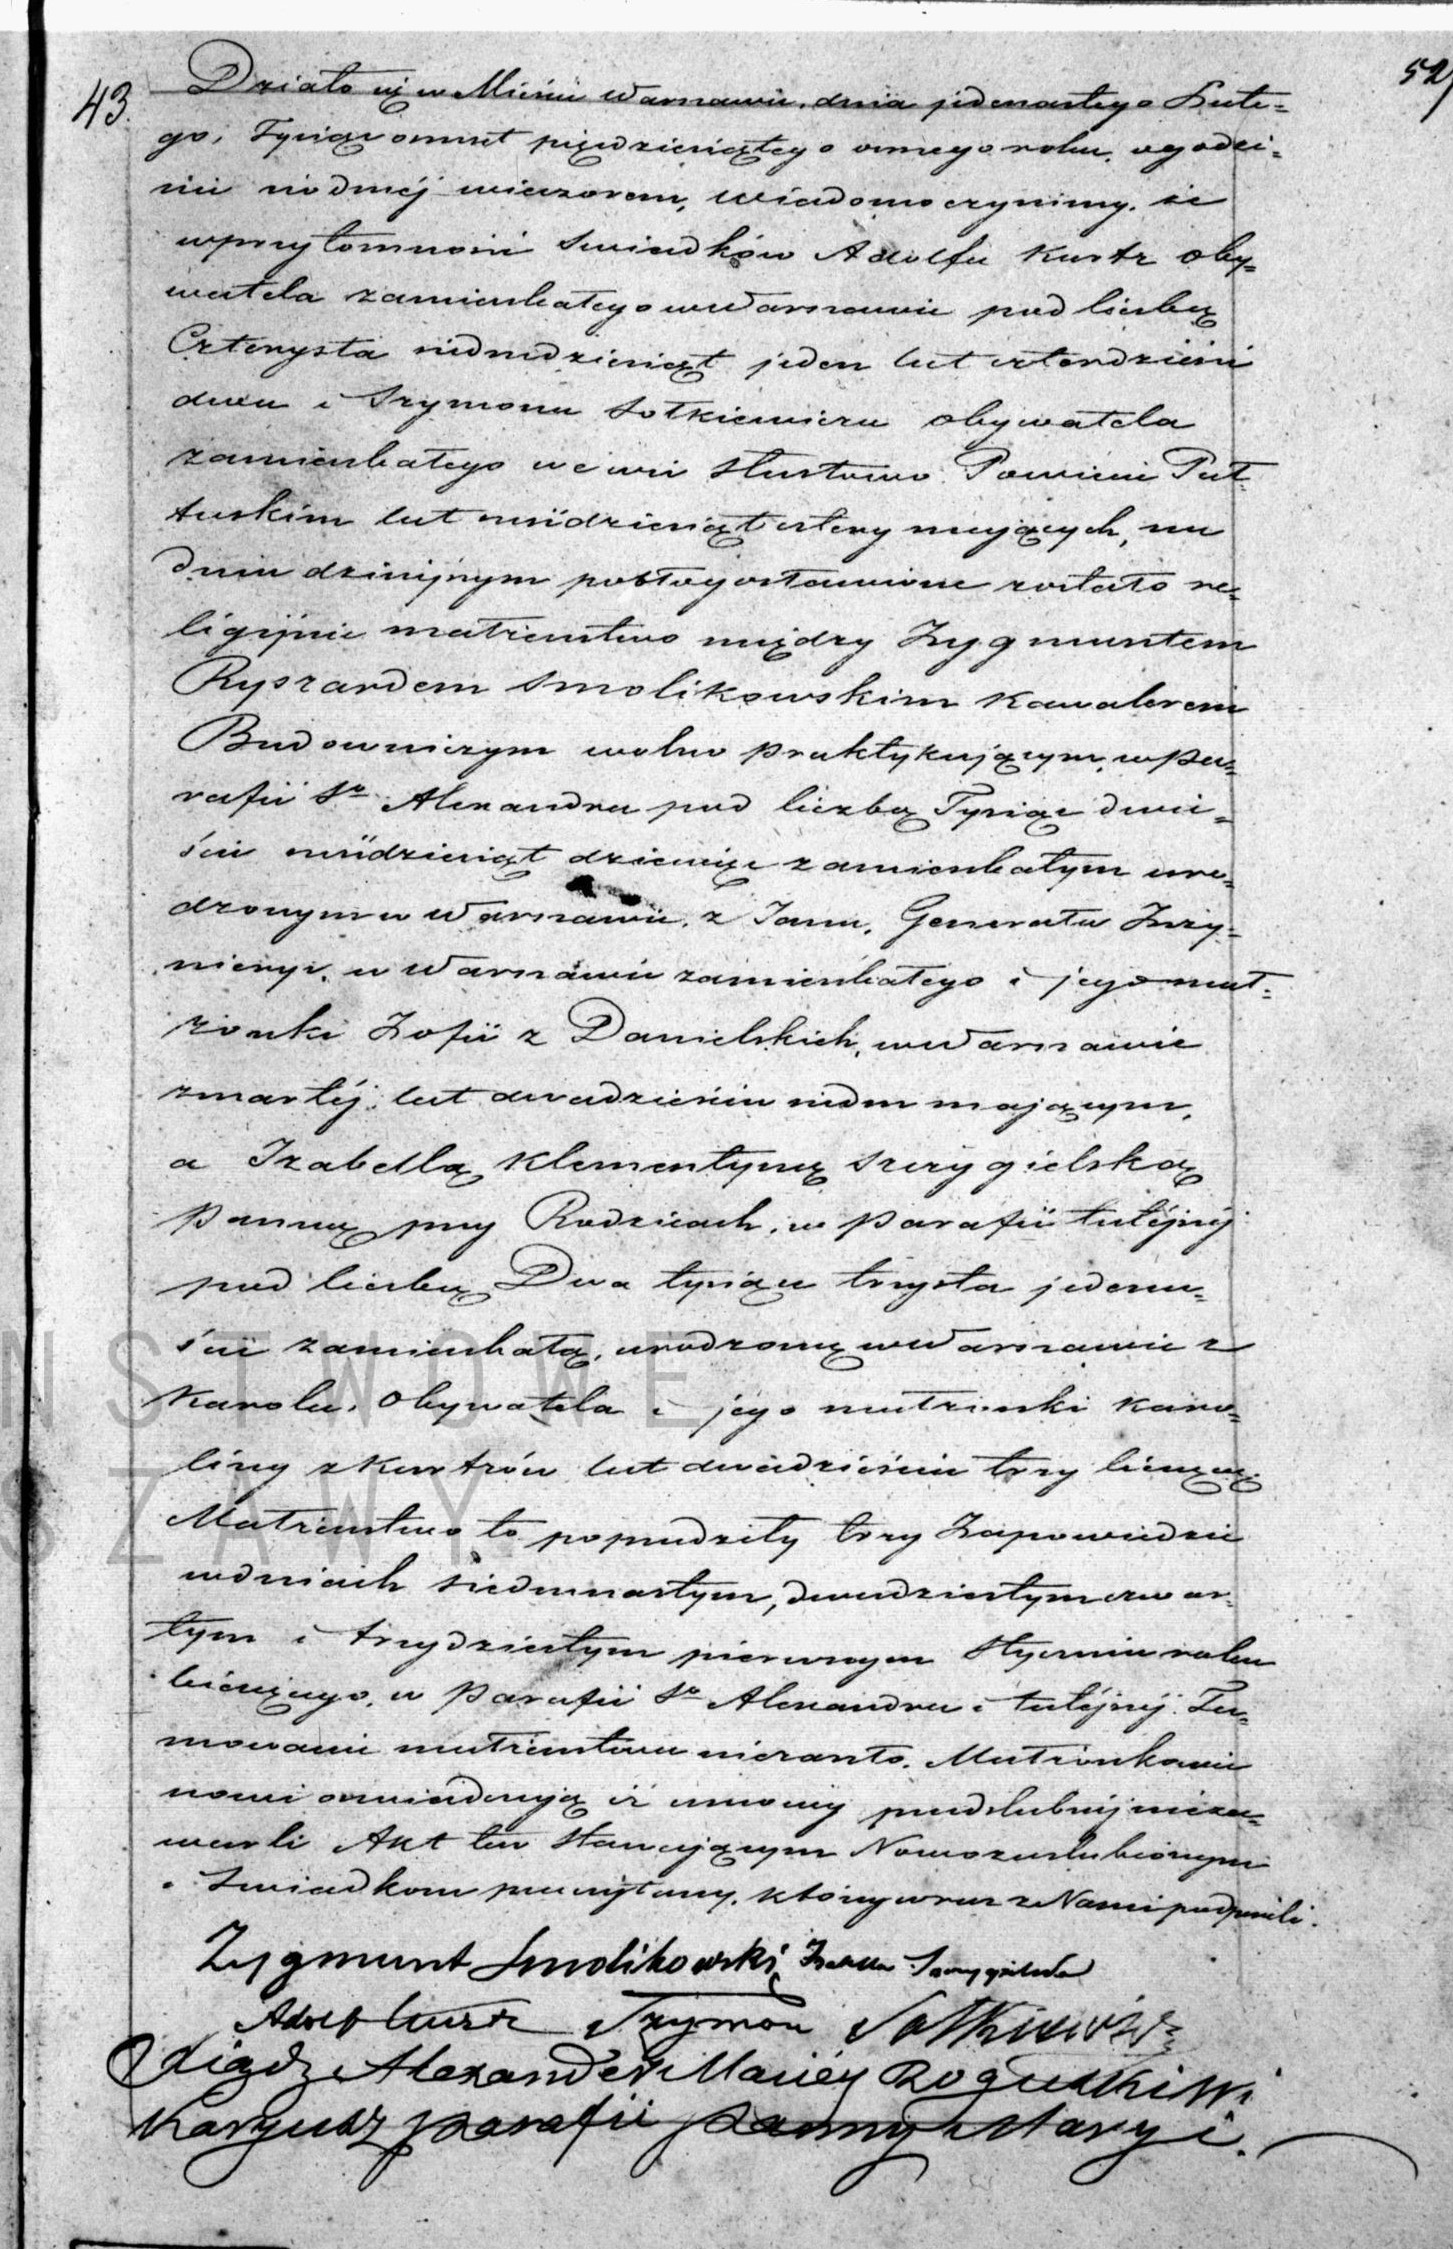 52
43. Działo się w Mieście Warszawie, dnia jedenastego Lute=
go, Tysiąc ośmset pięćdziesiątego ósmego roku, o godzi=
nie siódméj wieczorem, wiadomo czynimy, że
w przytomności Świadków Adolfa Kurtz oby=
watela zamieszkałego w Warszawie pod liczbą
Czterysta siedmdziesiąt jeden lat czterdzieści
dwa i Szymona Sotkiewicza obywatela
zamieszkałego we wsi Powiecie Puł=
tuskim lat sześćdziesiąt cztery mających, na
dniu dzisiejszym pobłogosławione zostało re=
ligijnie małżeństwo między Zygmuntem
Ryszardem Smolikowskim Kawalerem
Budowniczym wolno praktykującym, w Pa=
rafii Sgo Alexandra pod liczbą Tysiąc dwie=
ście sześćdziesiąt dziewięć zamieszkałym uro=
dzonym w Warszawie, z Jana, Generała Inży=
nieryi, w Warszawie zamieszkałego i jego mał=
żonki Zofii z Danielskich, w Warszawie
zmarłéj, lat dwadzieścia siedm mającym,
a Izabellą Klementyną Szczygielską
Panną przy Rodzicach, w Parafii tutéjszéj
pod liczbą Dwa tysiące trzysta jedena=
ście zamieszkałą, urodzoną w Warszawie z
Karola, Obywatela i jego małżonki Karo=
liny z Kurtzów lat dwadzieścia trzy liczącą.
Małżeństwo to poprzedziły trzy Zapowiedzie
w dniach siedmnastym, dwudziestym czwar=
tym i trzydziestym pierwszym Stycznia roku
bieżącego, w Parafii Sgo Alexandra i tutéjszéj. Ta=
mowanie małżeństwa nie zaszło. Małżonkowie
nowi oświadczają iż umowy przedślubnéj nieza=
warli Akt ten stawającym Nowozaślubionym
i Świadkom przeczytany, którzy wraz z Nami podpisali.
Zygmunt Smolikowski Izabella Szczygielska
Adolf Kurtz Szymon Sotkiewicz
Xiądz Alexander Maciéy Wi
Karyusz Parafii Panny Maryi.
NSTWOWE
SZAWY